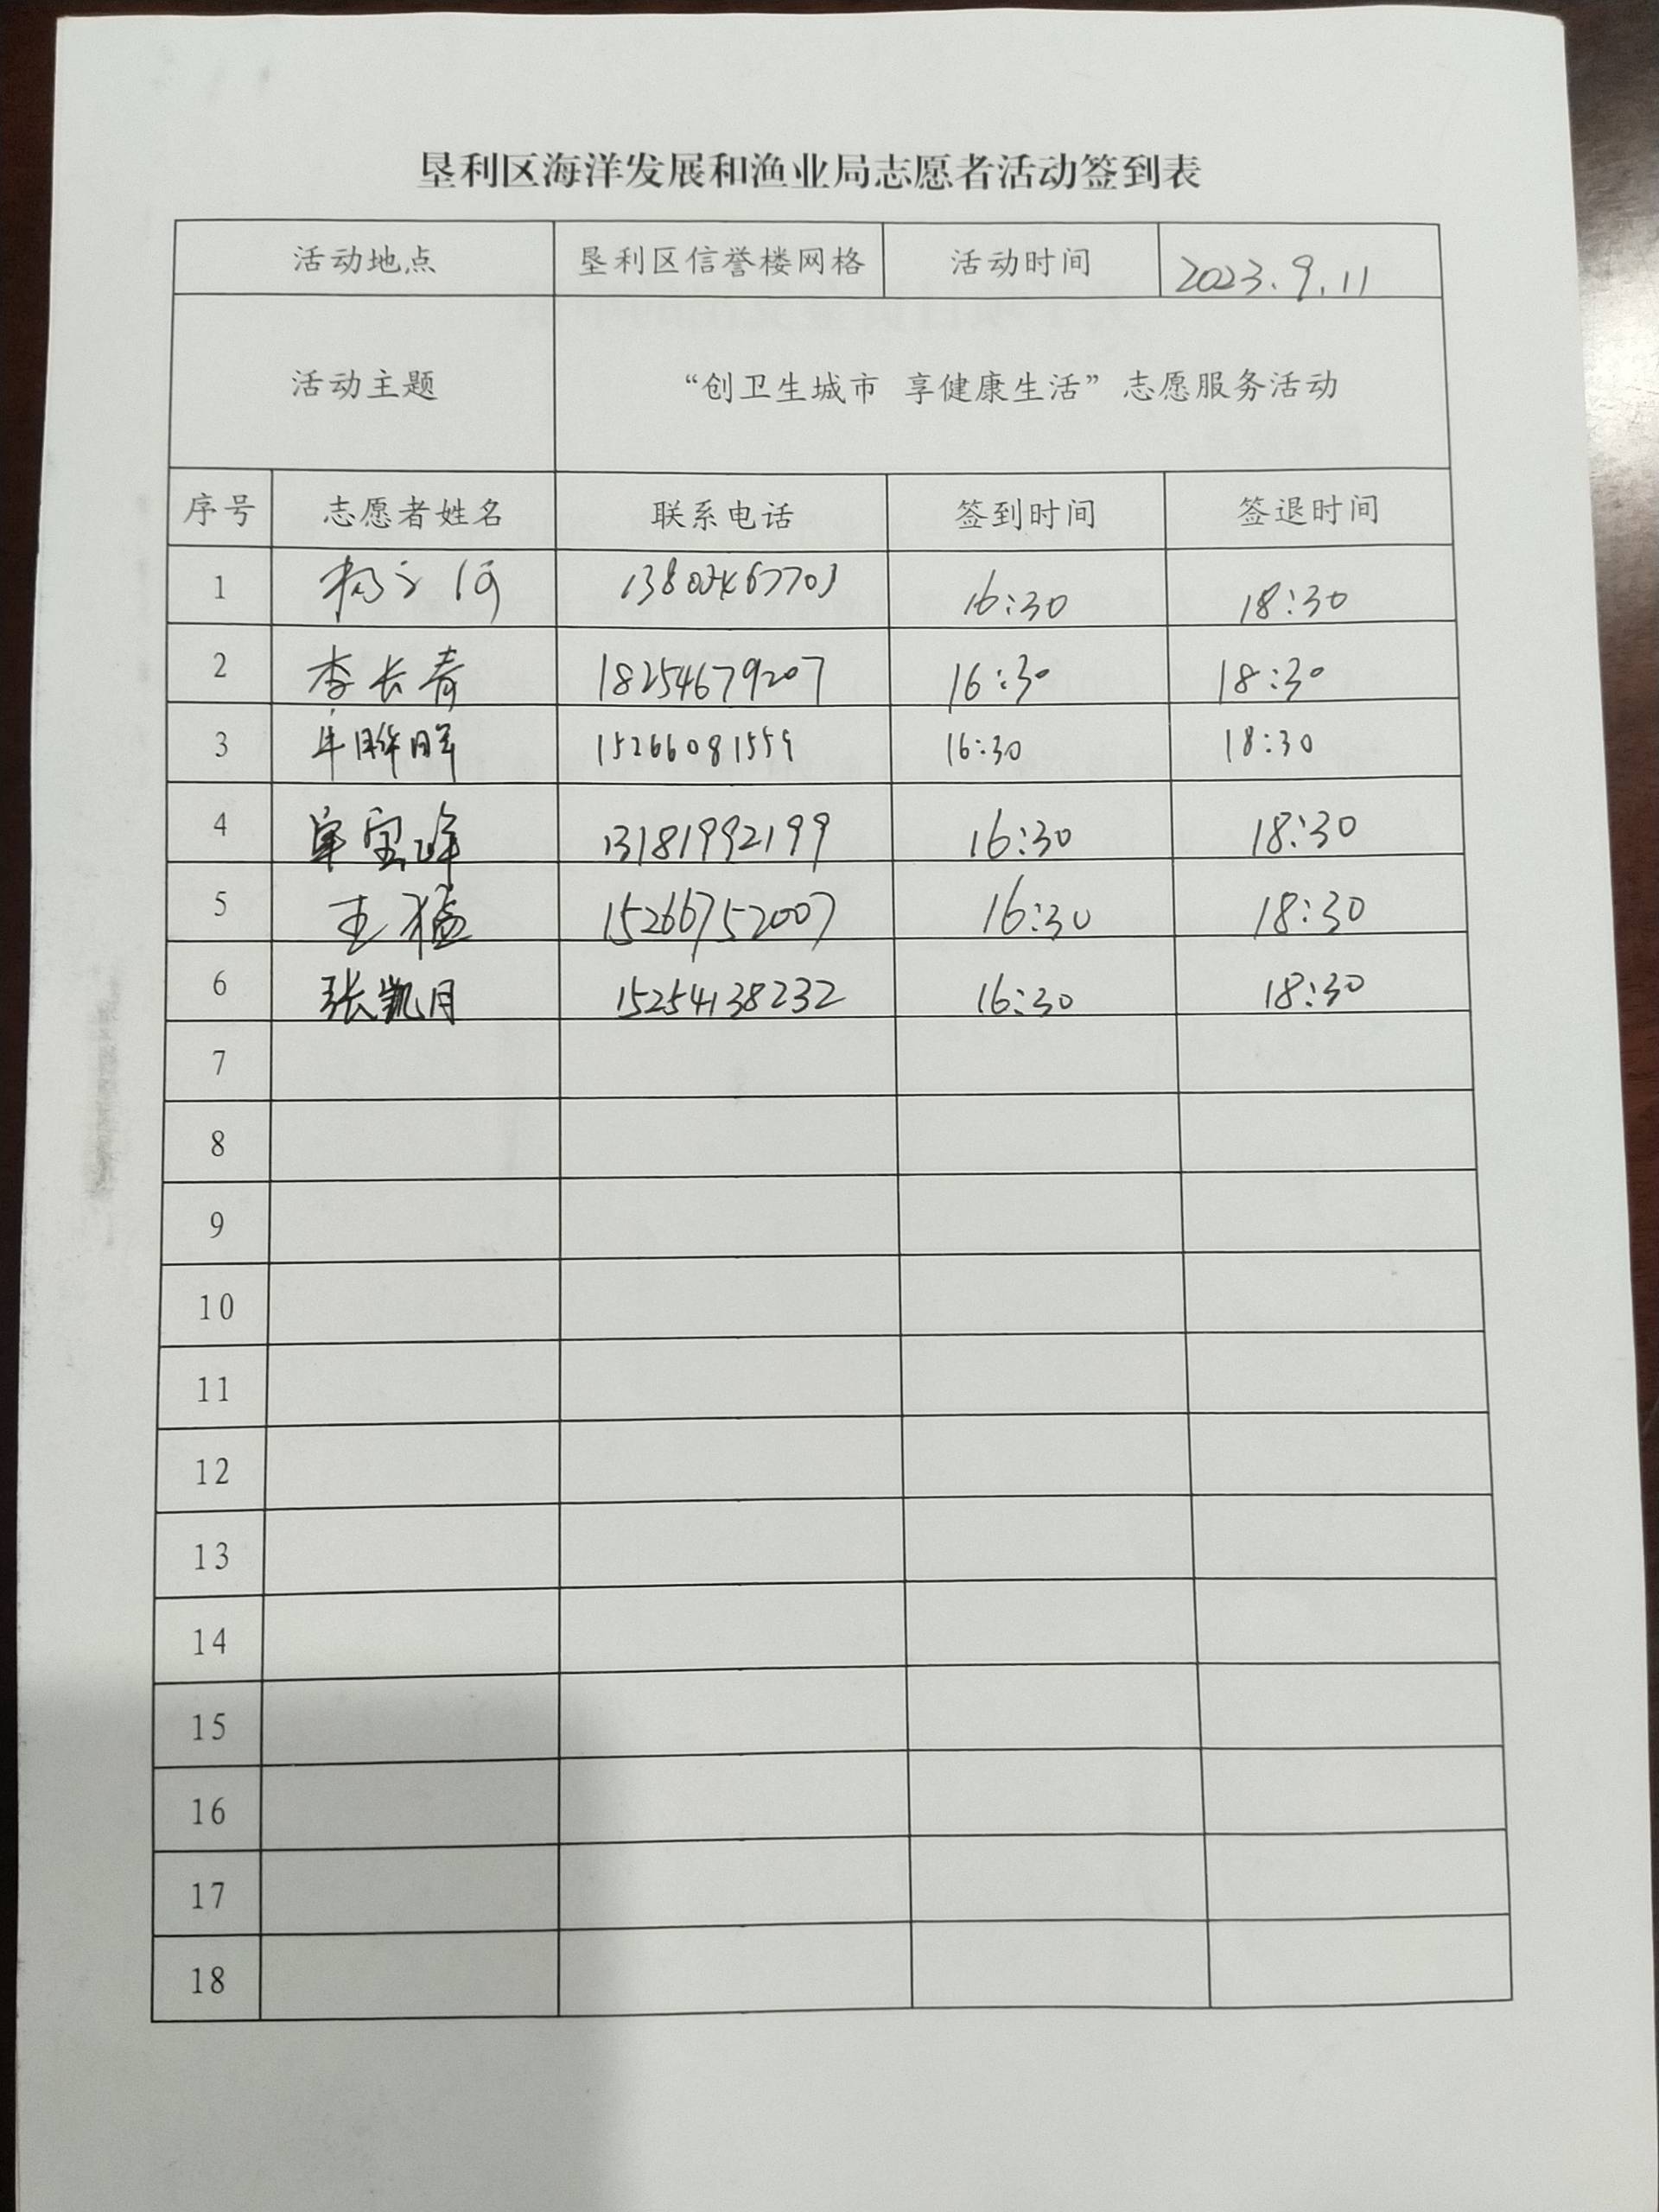 垦利区海洋发展和渔业局志愿者活动签到表
活动地点 垦利区信誉楼网格 活动时间 2023.9.11
活动主题 “创卫生城市 享健康生活”志愿服务活动
序号 志愿者姓名 联系电话 签到时间 签退时间
1 16:30 18:30
2 李长春 18254679207 16:30 18:30
3 15266081559 16:30 18:30
4 13181992199 16:30 18:30
5 王猛 15266752007 16:30 18:30
6 张凯月 15254138232 16:30 18:30
7
8
9
10
11
12
13
14
15
16
17
18